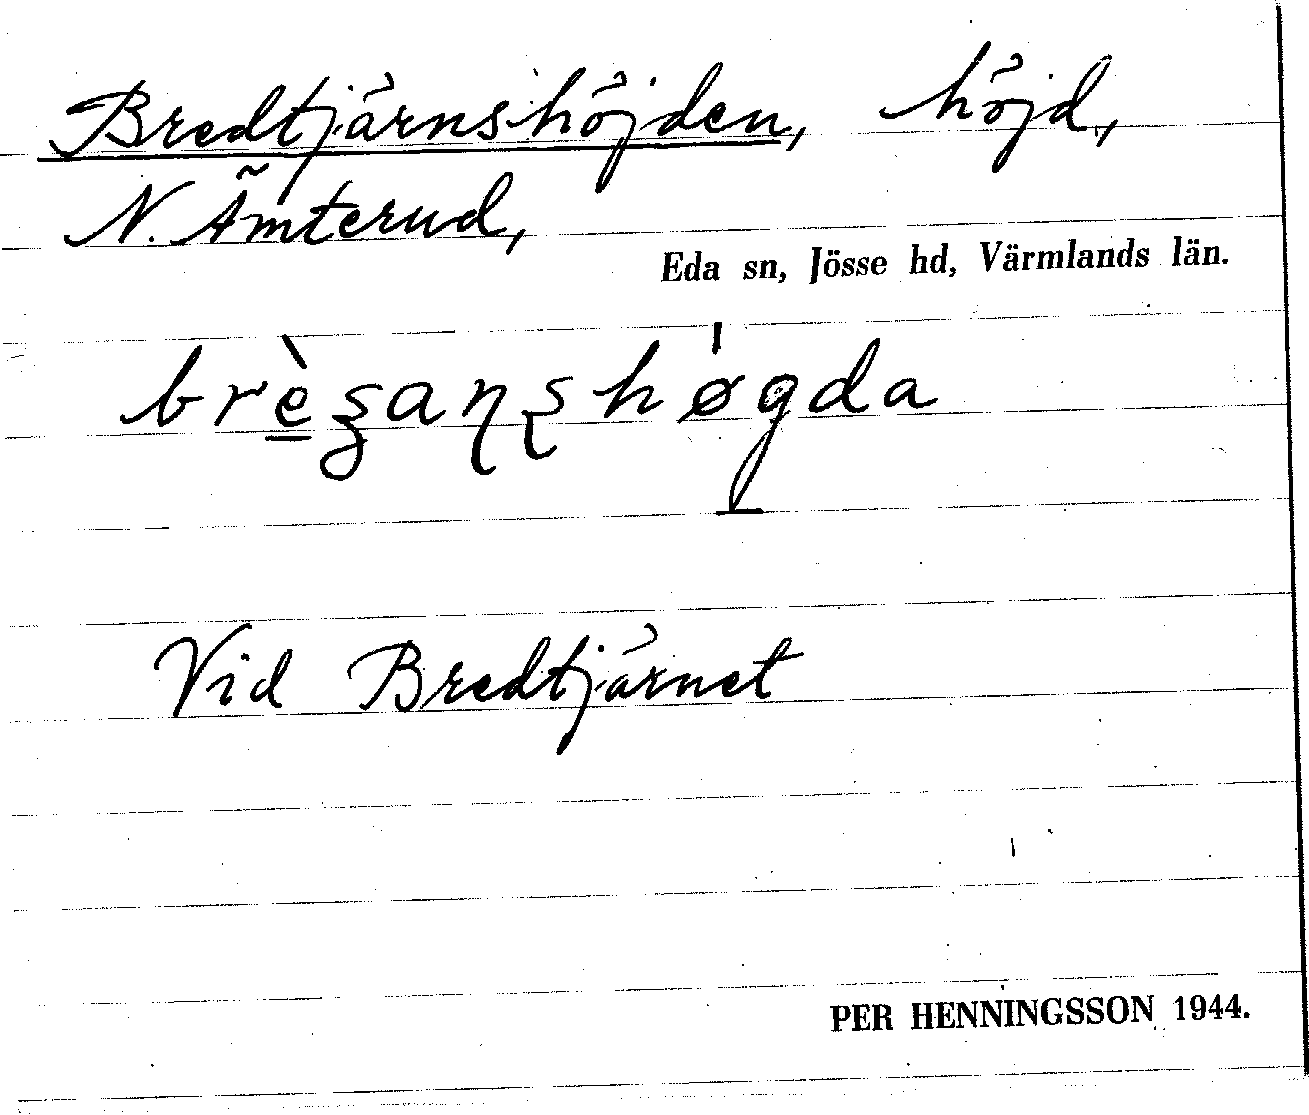 Bredtjärnshöjden, höjd,
N. Ämterud,
Eda sn, Jösse hd, Värmlands län.
Vid Bredtjärnet
PER HENNINGSSON 1944.